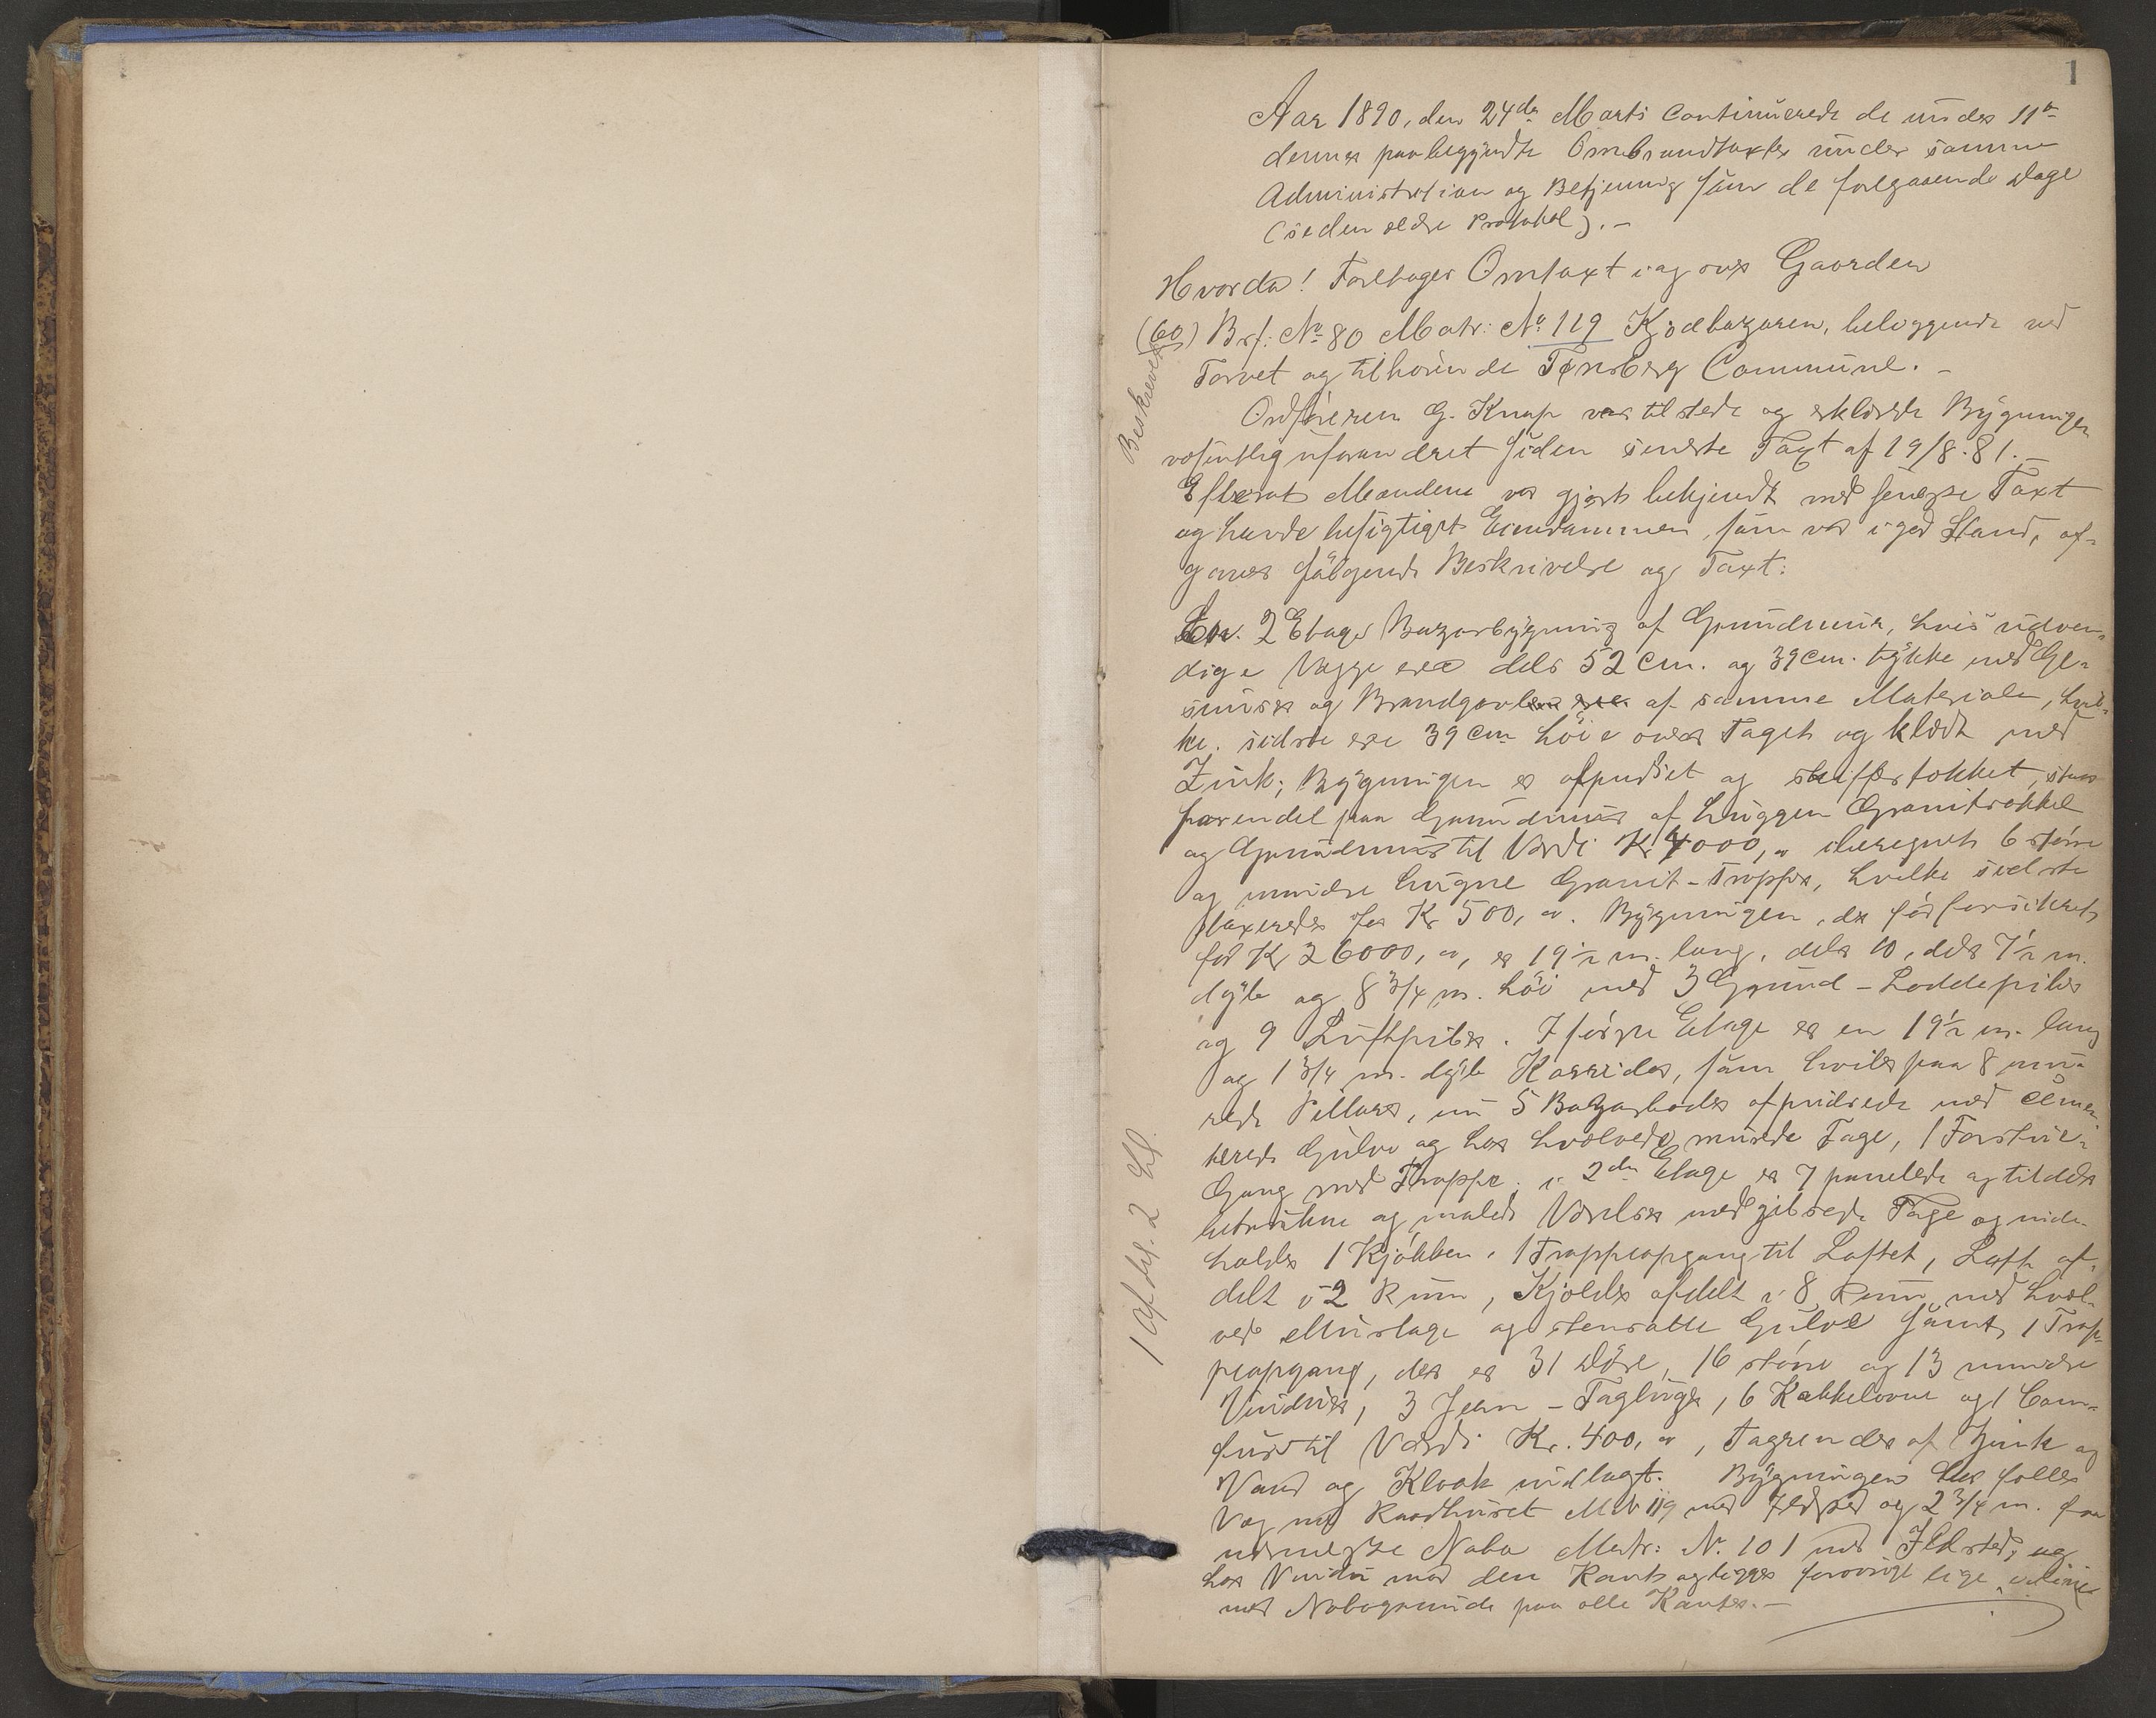 1
Aar 1890, den 24de Marts Continuerede de under 11te
dennes paabegyndte Ombrandtaxter under samme
Administration og Betjening som de foregaaende Dage
(se den ældre Protokol). -
Hvorda! Foretages Omtaxt i og over Gaarden
(60) Brf: No 80 Matr: No 119 Kjødbazaren, beliggende ved
Torvet og tilhørende Tønsberg Commune. -
Beskrevet
Ordføreren G. Knap var tilstede og erklærede Bygningen
væsentlig uforandret siden seneste Taxt af 19/8.81. -
Efterat Mændene var gjort bekjendt med seneste Taxt
og havde besigtiget Eiendommen, som var i god Stand, af-
gaves følgende Beskrivelse og Taxt:
En 2 Etages Bazarbygning af Grundmur, hvis udven-
dige Vægge ere dels 52 Cm. og 39 Cm. tykke med Ge-
simser og Brandgavlen ere af samme Materiale, hvil-
ke sidste ere 39 Cm høie over Taget og klædt med
Zink; Bygningen er afpudset og skiffertækket, staar
paa Grundmur af huggen Granitsokkel
og Grundmur til Værdi Kr 4000, " iberegnet 6 større
og mindre hugne Granit-Trapper, hvilke sidste
taxeredes for Kr 500, ". Bygningen, der før forsikrets
for Kr 26000, ", er 19 1/2 m. lang, dels 10, dels 7 1/2 m.
dyb og 8 3/4 m. høi med 3 Grund-Loddepiber
og 9 Luftpiber. I første Etage er en 19 1/2 m. lang
og 1 3/4 m. dyb Korridor, som hviler paa 8 mu-
rede Pillarer, 5 Bazarboder afpudsede med cemen-
terede Gulve og har hvælvede murede Tage, 1 Forstue-
Gang med Trappe; i 2den Etage er 7 panelede og tildels
betrukne og malede Værelser med gibsede Tage og inde-
holder 1 Kjøkken, 1 Trappeopgang til Loftet, Loft af-
delt i 2 Rum, Kjelder afdelt i 8 Rum med hvæl-
vede Murtage og stensatte Gulve samt 1 Trap-
peopgang, der er 31 Døre, 16 større og 13 mindre
Vinduer, 3 Jern-Tagluger, 6 Kakkelovne og 1 Com-
fur til Værdi Kr. 400, ", Tagrender af Zink og
Vand og Kloak indlagt. Bygningen har fælles
Væg med Raadhuset M No 119 med Ildsted og 2 3/4 m. fra
nærmeste Nabo Matr: No 101 med Ildsted, og
har Vindu mod den Kant og ligger forøvrigt lige i Linje
med Nabogrunde paa alle Kanter. -
1 Afdel. 2 Kl.